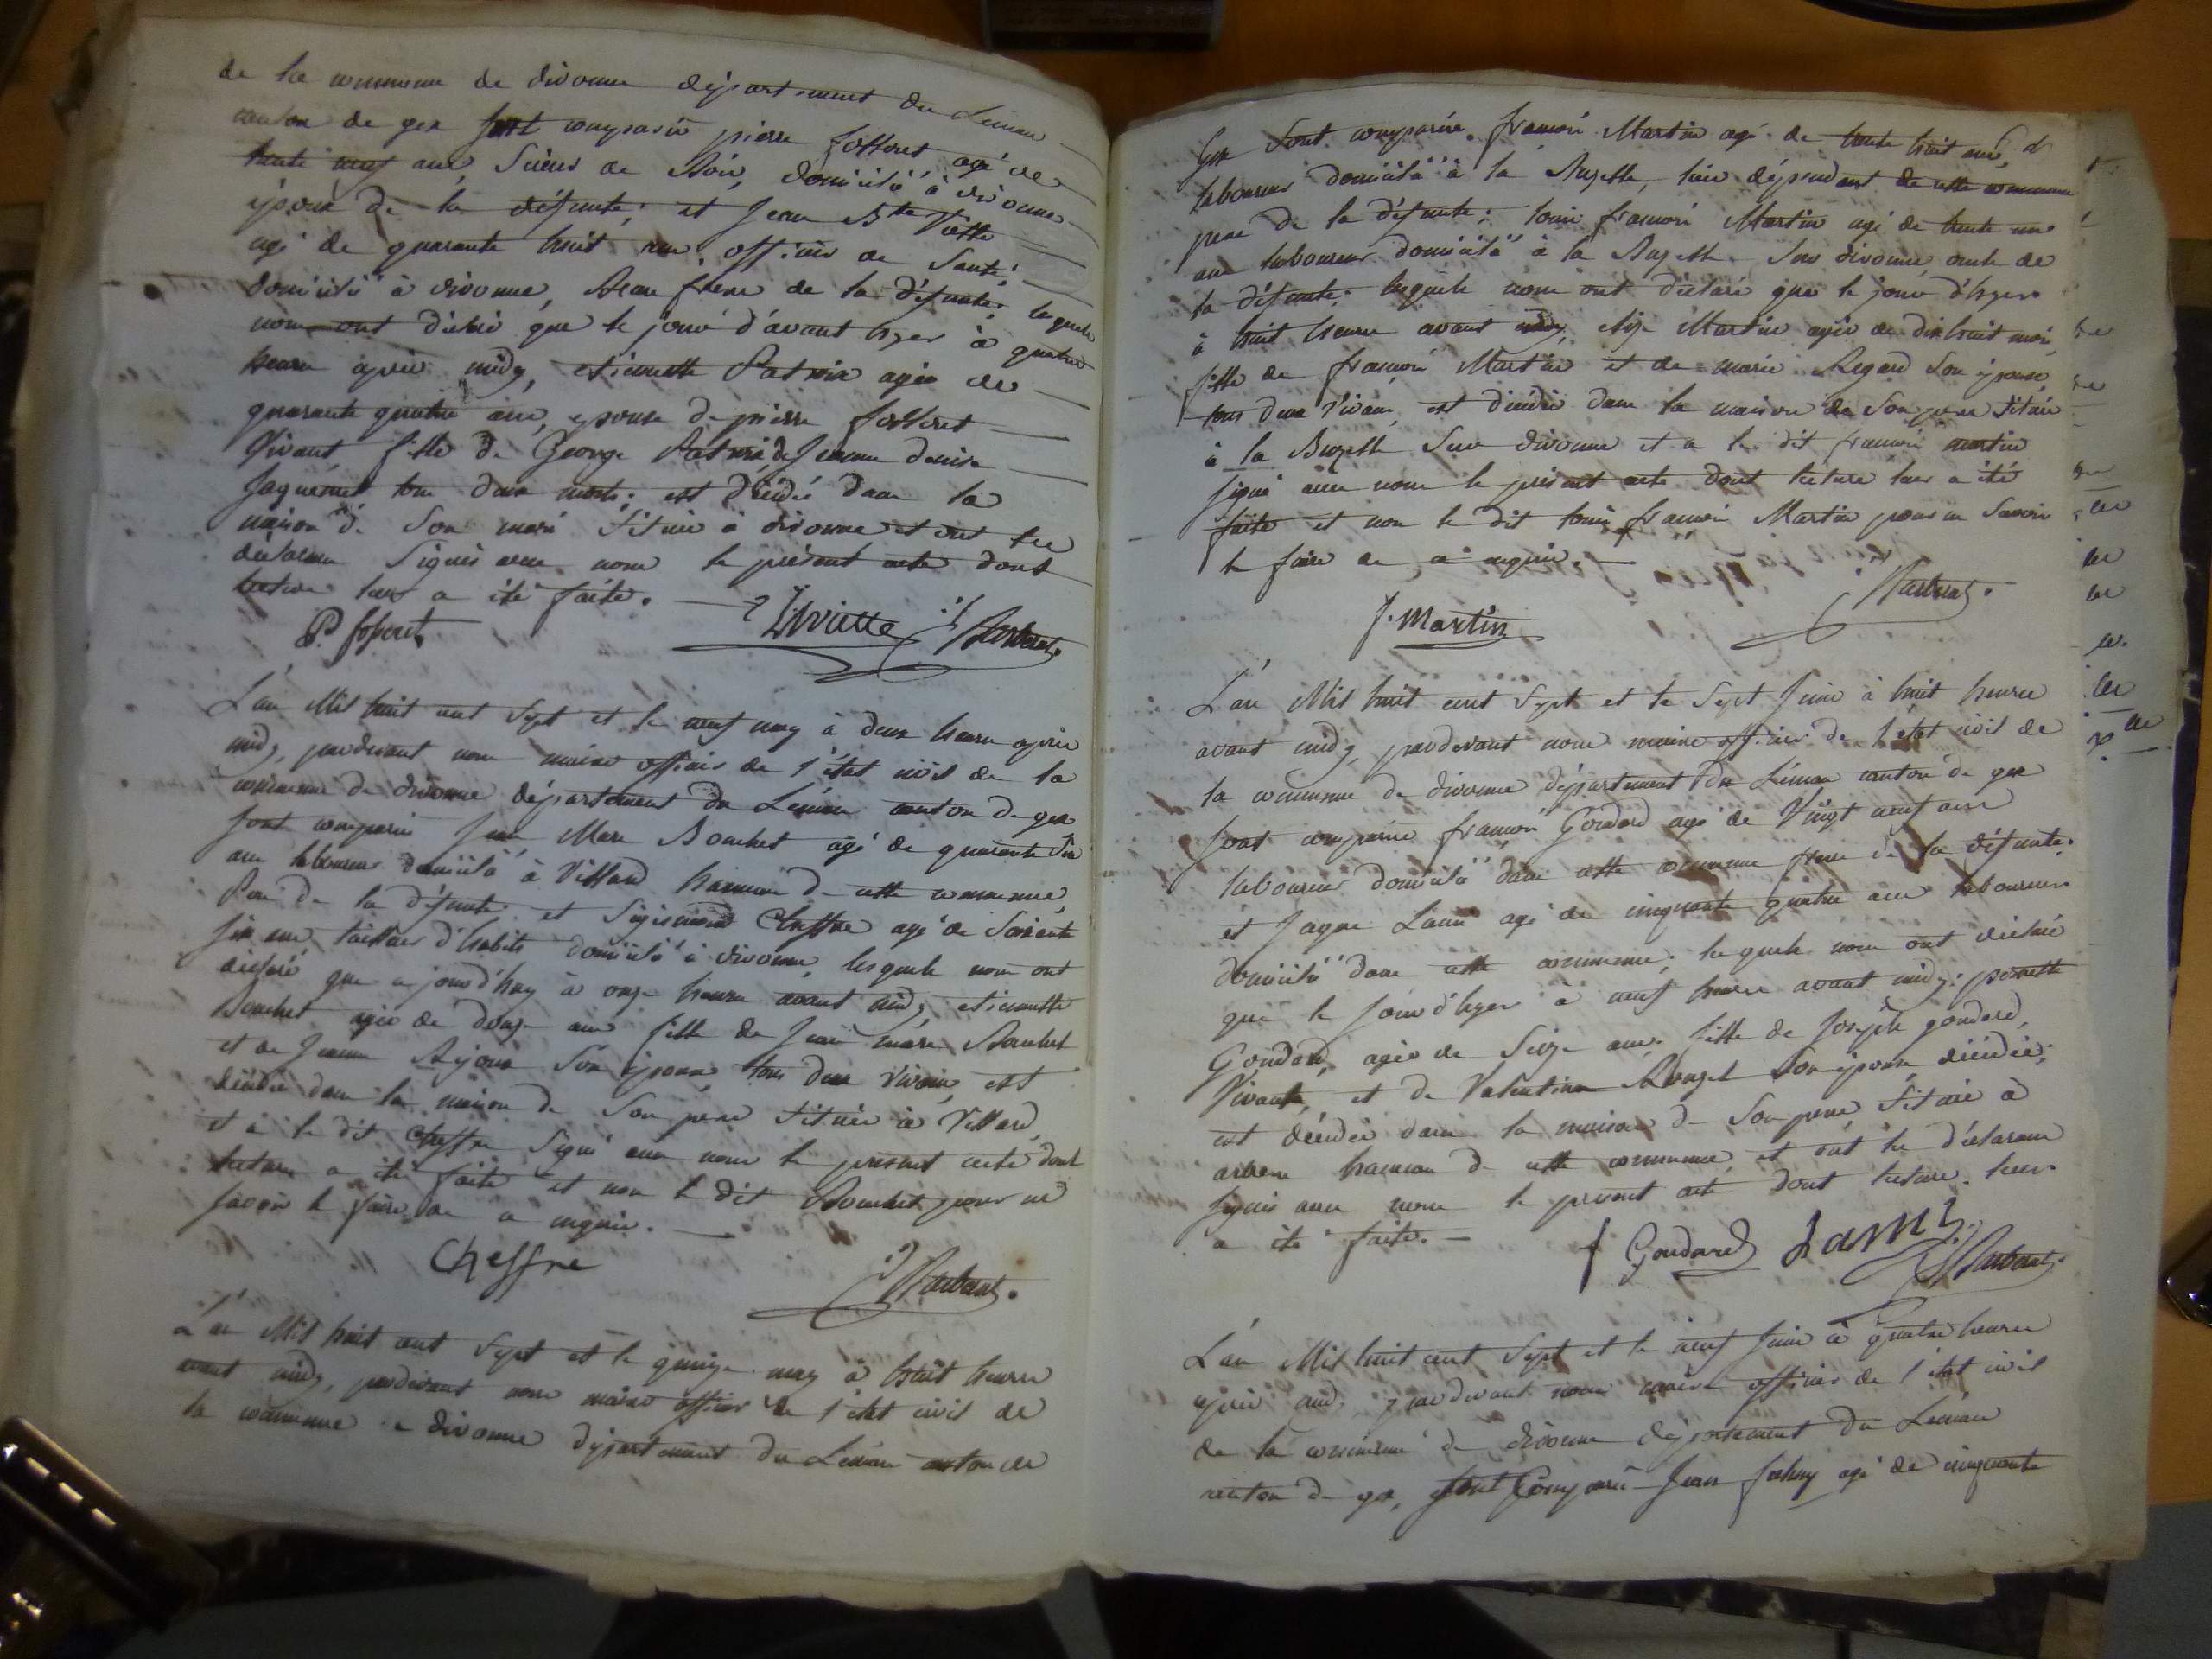 de la commune de divonne département du Leman
canton de gex sont comparus pierre fosseret agé de
trente neuf ans, Scieur de Bois, domicilié à divonne
époux de la défunte; et Jean Bte Viatte
agé de quarante huit ans, officier de Santé,
domicilié à divonne, Beau frere de la défunte; lesquels
nous ont déclaré que le jour d'avant hyer à quatre
heures après midy, etiennette Patroix agée de
quarante quatre ans, epouse de pierre fosseret
Vivant fille de George Patroix, de Jeanne denise
Jaquemet tous deux morts; est décédée dans la
maison de Son mari Située à divonne et ont les
déclarans Signés avec nous le présent acte dont
lecture leur a été faite.
P. fosseret Viatte
L'an Mil huit cent Sept et le neuf may à deux heures après
midy, pardevant nous maire officier de l'état civil de la
commune de divonne département du Léman canton de gex
Sont comparus Jean Marc Bouchet agé de quarante Six
ans laboureur domicilié à Villard hameau de cette commune,
Pere de la défunte; et Sigismond Cheffre agé de Soixante
Six ans, tailleur d'habits domicilié à divonne, lesquels nous ont
déclaré que ce jourd'huy à onze heures avant midy etiennette
Bouchet agée de douze ans fille de Jean marc Bouchet
et de Jeanne Bejoux Son épouse, tous deux vivans, est
décédée dans la maison de Son pere Située à Villard,
et a le dit Cheffre Signé avec nous le présent acte dont
lecture a été faite et non le dit Bouchet pour ne
Savoir le faire de ce requis.
Cheffre
L'an Mil huit cent Sept et le quinze may à huit heures
avant midy, pardevant nous maire officier de l'état civil de
la commune de divonne département du Léman canton de
Gex Sont comparus françois Martin agé de trente huit ans,
laboureur domicilié à la Bazette, lieu dépendant de cette commune
pere de la défunte; louis françois Martin agé de trente un
ans laboureur domicilié à la Bazette Sur divonne, oncle de
la défunte; lesquels nous ont déclaré que le jour d'hyer
à huit heures avant midy, elize Martin agée de dix huit mois,
fille de françois Martin et de marie Regard Son épouse,
tous deux vivans, est décédée dans la maison de Son pere Située
à la Bazette Sur divonne et a le dit françois martin
Signé avec nous le présent acte dont lecture leur a été
faite et non le dit louis françois Martin pour ne Savoir
le faire de ce requis.
f. Martin
L'an Mil huit cent Sept et le Sept Juin à huit heures
avant midy, pardevant nous maire officier de l'état civil de
la commune de divonne département du Léman canton de gex
Sont comparus françois Goudard agé de Vingt neuf ans
laboureur domicilié dans cette commune frere de la défunte,
et Jaque Lami agé de cinquante quatre ans laboureur
domicilié dans cette commune; lesquels nous ont déclaré
que le Jour d'hyer à neuf heures avant midy: pernette
Goudard, agée de Seize ans, fille de Joseph goudard,
Vivant, et de Valentine Rouzet Son épouse décédée;
est décédée dans la maison de Son pere, Située à
arbere hameau de cette commune, et ont les déclarans
Signés avec nous le présent acte dont lecture leur
a été faite.
f Goudard Lami
L'an Mil huit cent Sept et le neuf Juin à quatre heures
après midy, pardevant nous maire officier de l'état civil
de la commune de divonne département du Léman
canton de gex, Sont Comparus Jean agé de cinquante